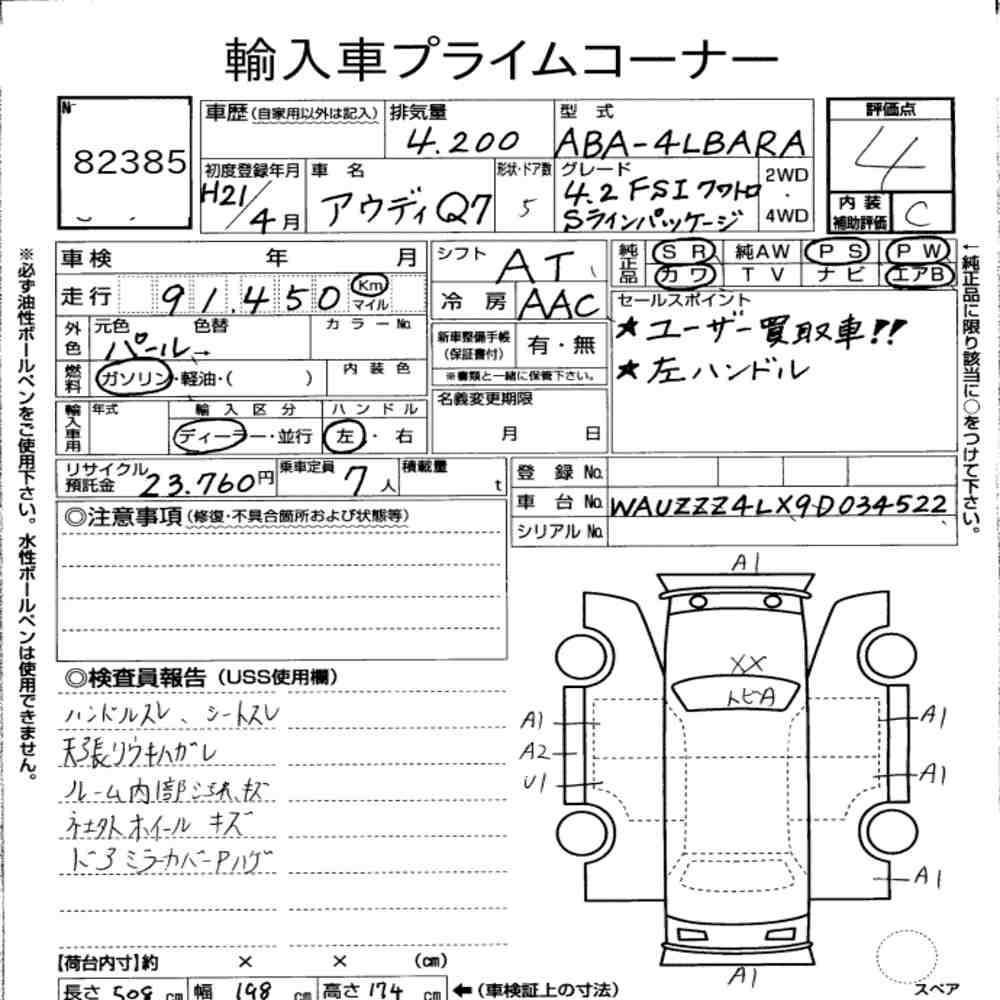 輸入車プライムコーナー
No
82385
車歴 (自家用以外は記入)
排気量
4.200
型式
ABA-4LBARA
評価点
4
初度登録年月
H21/4月
車名
アウディQ7
形状・ドア数
5
グレード
4.2 FSI クワトロ
Sラインパッケージ
2WD
・
4WD
内装
補助評価
C
車検 年 月
走行 91.450 Km
マイル
シフト AT
冷房 AAC
純正品 SR 純AW PS PW
カワ TV ナビ エアB
外色 元色 色替 カラーNo.
パール→
燃料 ガソリン・軽油・( )
内装色
新車整備手帳
(保証書付)
有・無
※書類と一緒に保管下さい。
セールスポイント
★ユーザー買取車!!
★左ハンドル
輸入車用 年式 輸入区分 ハンドル
ディーラー・並行 左・右
名義変更期限
月 日
リサイクル
預託金 23.760円
乗車定員 7人
積載量 t
登録No.
車台No. WAUZZZ4LX9D034522
シリアルNo.
◎注意事項 (修復・不具合箇所および状態等)
◎検査員報告 (USS使用欄)
ハンドルスレ、シートスレ
天張リウキハガレ
ルーム内部 キズ
ホイール キズ
ドアミラーカバーPハゲ
A1
XX
トビA
A1
A2
U1
A1
A1
A1
A1
【荷台内寸】約 × × (cm)
長さ 508 cm 幅 198 cm 高さ 174 cm ←(車検証上の寸法)
スペア
※必ず油性ボールペンをご使用下さい。水性ボールペンは使用できません。
←純正品に限り該当に○をつけて下さい。